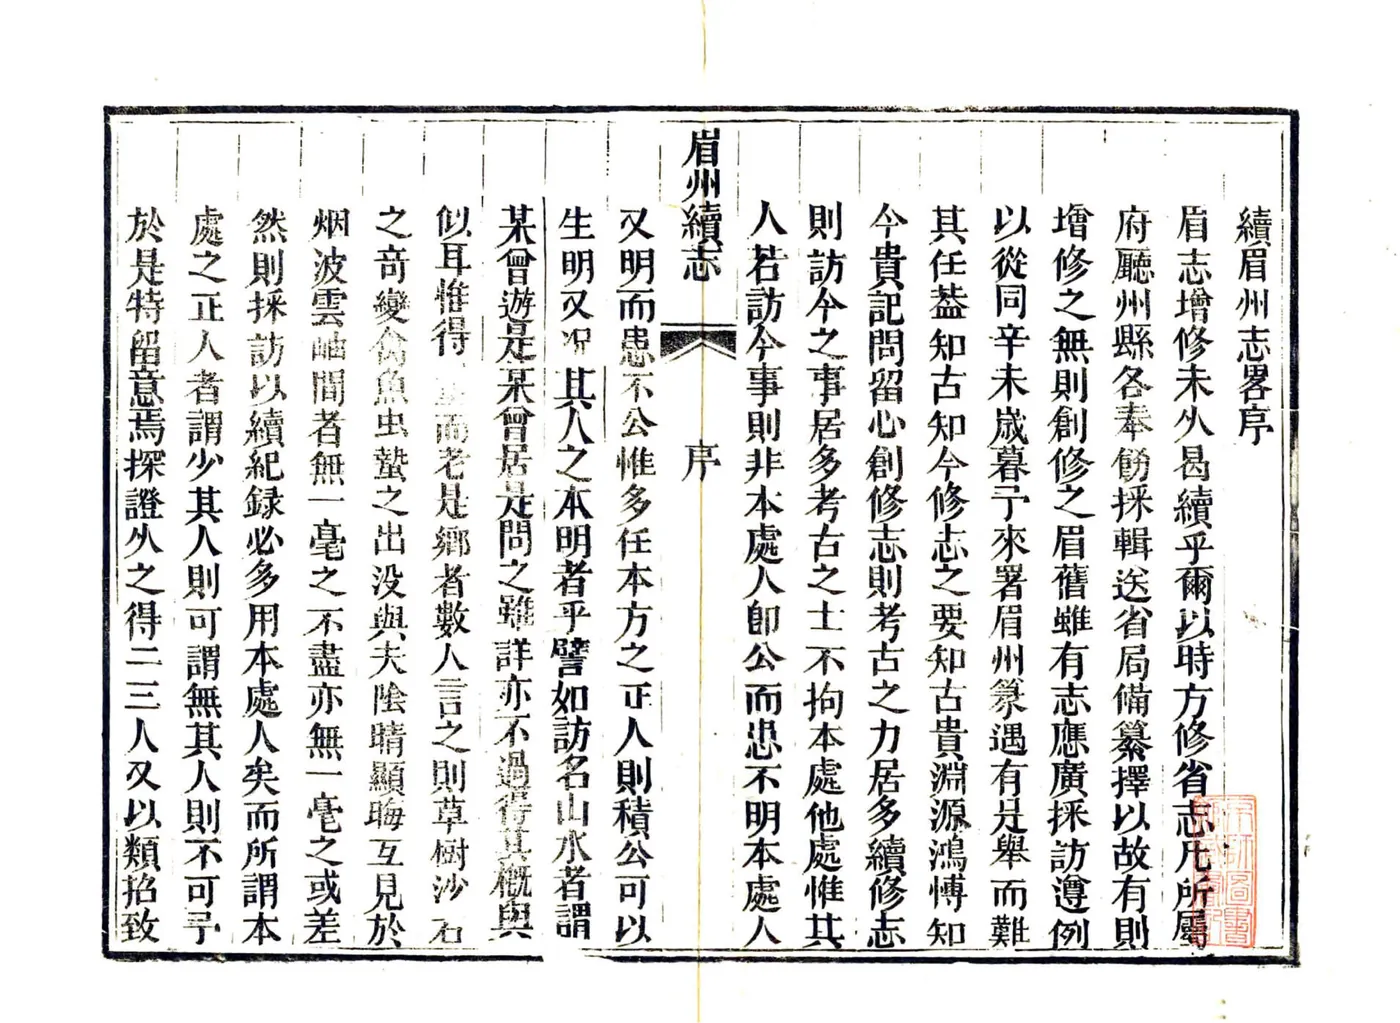 續眉州志畧序
眉志增修未久曷續乎爾以時方修省志凡所屬
府廳州縣各奉飭採輯送省局備纂擇以故有則
增修之無則創修之眉舊雖有志應廣採訪遵例
以從同辛未歲暮予來署眉州篆遇有是舉而難
其任葢知古知今修志之要知古貴淵源鴻博知
今貴記問留心創修志則考古之力居多續修志
則訪今之事居多考古之士不拘本處他處惟其
人若訪今事則非本處人卽公而患不明本處人
眉州續志
序
又明而患不公惟多任本方之正人則積公可以
生明又况其人之本明者乎譬如訪名山水者謂
某曾遊是某曾居是問之雖詳亦不過得其概與
似耳惟得而老是鄉者數人言之則草樹沙石
之奇變禽魚虫蟄之出没與夫陰晴顯晦互見於
烟波雲岫間者無一毫之不盡亦無一毫之或差
然則採訪以續紀録必多用本處人矣而所謂本
處之正人者謂少其人則可謂無其人則不可予
於是特留意焉探證久之得二三人又以類招致